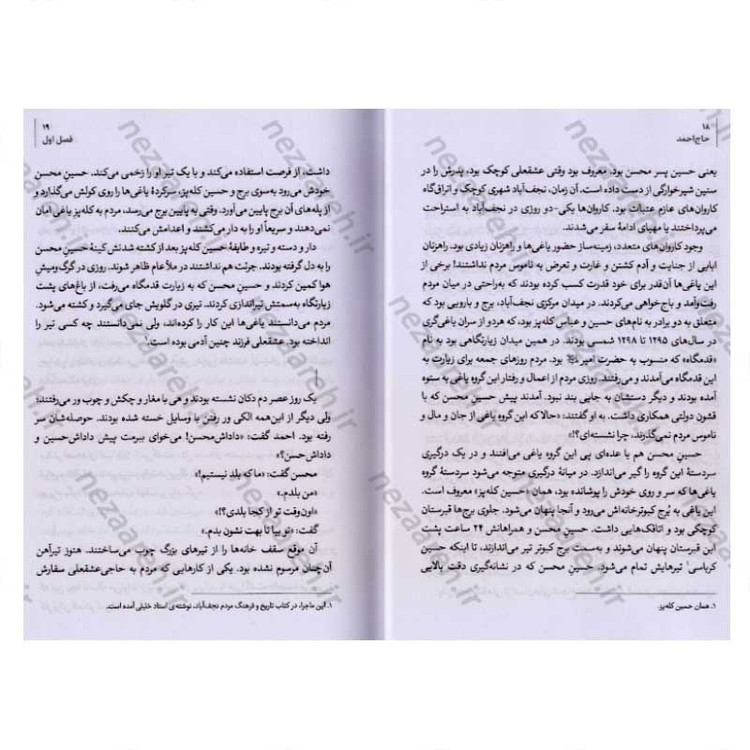 ۱۸
حاج‌احمد
یعنی حسین پسر محسن بود. معروف بود وقتی عشقعلی کوچک بود، پدرش را در
سنین شیرخوارگی از دست داده است. آن زمان، نجف‌آباد شهری کوچک و اتراق‌گاه
کاروان‌های عازم عتبات بود. کاروان‌ها یکی-دو روزی در نجف‌آباد به استراحت
می‌پرداختند یا مهیای ادامۀ سفر می‌شدند.
وجود کاروان‌های متعدد، زمینه‌ساز حضور یاغی‌ها و راهزنان زیادی بود. راهزنان
ابایی از جنایت و آدم کشتن و غارت و تعرض به ناموس مردم نداشتند! برخی از
این یاغی‌ها آن‌قدر برای خود قدرت کسب کرده بودند که به‌راحتی در میان مردم
رفت‌وآمد و باج‌خواهی می‌کردند. در میدان مرکزی نجف‌آباد، برج و بارویی بود که
متعلق به دو برادر به نام‌های حسین و عباس کله‌پز بود، که هردو از سران یاغی‌گری
در سال‌های ۱۲۹۵ تا ۱۲۹۸ شمسی بودند. در همین میدان زیارتگاهی بود به نام
«قدمگاه» که منسوب به حضرت امیر بود. مردم روزهای جمعه برای زیارت به
این قدمگاه می‌آمدند و می‌رفتند. روزی مردم از اعمال و رفتار این گروه یاغی به ستوه
آمده بودند و دیگر دستشان به جایی بند نبود. آمدند پیش حسینِ محسن که با
قشون دولتی همکاری داشت. به او گفتند: «حالا که این گروه یاغی از جان و مال و
ناموس مردم نمی‌گذرند، چرا نشسته‌ای؟!»
حسینِ محسن هم با عده‌ای پی این گروه یاغی می‌افتند و در یک درگیری
سردستۀ این گروه را گیر می‌اندازد. در میانۀ درگیری متوجه می‌شود سردستۀ گروه
یاغی‌ها که سر و روی خودش را پوشانده بود، همان «حسین کله‌پز» معروف است.
این یاغی به برج کبوترخانه‌اش می‌رود و آنجا پنهان می‌شود. جلوی برج‌ها قبرستان
کوچکی بود و اتاقک‌هایی داشت. حسینِ محسن و همراهانش ۲۴ ساعت پشت
این قبرستان پنهان می‌شوند و به‌سمت برج کبوتر تیر می‌اندازند، تا اینکه حسین
کرباسی۱ تیرهایش تمام می‌شود. حسینِ محسن که در نشانه‌گیری دقت بالایی
۱. همان حسین کله‌پز.
۱۹
فصل اول
داشت، از فرصت استفاده می‌کند و با یک تیر او را زخمی می‌کند. حسینِ محسن
خودش می‌رود به‌سوی برج و حسین کله‌پز، سرکردۀ یاغی‌ها را روی کولش می‌گذارد و
از پله‌های آن برج پایین می‌آورد. وقتی به پایین برج می‌رسد، مردم به کله‌پز یاغی امان
نمی‌دهند و سریعاً او را به دار می‌کشند و اعدامش می‌کنند.
دار و دسته و تیره و طایفۀ حسین کله‌پز بعد از کشته شدنش کینۀ حسینِ محسن
را به دل گرفته بودند. جرئت هم نداشتند در ملأعام ظاهر شوند. روزی در گرگ‌ومیش
هوا کمین کردند و حسینِ محسن که به زیارت قدمگاه می‌رفت، از باغ‌های پشت
زیارتگاه به‌سمتش تیراندازی کردند. تیری در گلویش جای می‌گیرد و کشته می‌شود.
مردم می‌دانستند یاغی‌ها این کار را کرده‌اند، ولی نمی‌دانستند چه کسی تیر را
انداخته بود. عشقعلی فرزند چنین آدمی بوده است.۱
یک روز عصر دم دکان نشسته بودند و هی با مغار و چکش و چوب ور می‌رفتند؛
ولی دیگر از این‌همه الکی ور رفتن با وسایل خسته شده بودند. حوصله‌شان سر
رفته بود. احمد گفت: «داداش‌محسن! می‌خوای ببرمت پیش داداش‌حسین و
داداش‌حسن؟»
محسن گفت: «ما که بلد نیستیم!»
«من بلدم.»
«اون‌وقت تو از کجا بلدی؟!»
گفت: «تو بیا تا بهت نشون بدم.»
آن موقع سقف خانه‌ها را از تیرهای بزرگ چوب می‌ساختند. هنوز تیرآهن
آن‌چنان مرسوم نشده بود. یکی از کارهایی که مردم به حاجی‌عشقعلی سفارش
۱. این ماجرا، در کتاب تاریخ و فرهنگ مردم نجف‌آباد، نوشته‌ی استاد خلیلی آمده است.
nezaareh.ir